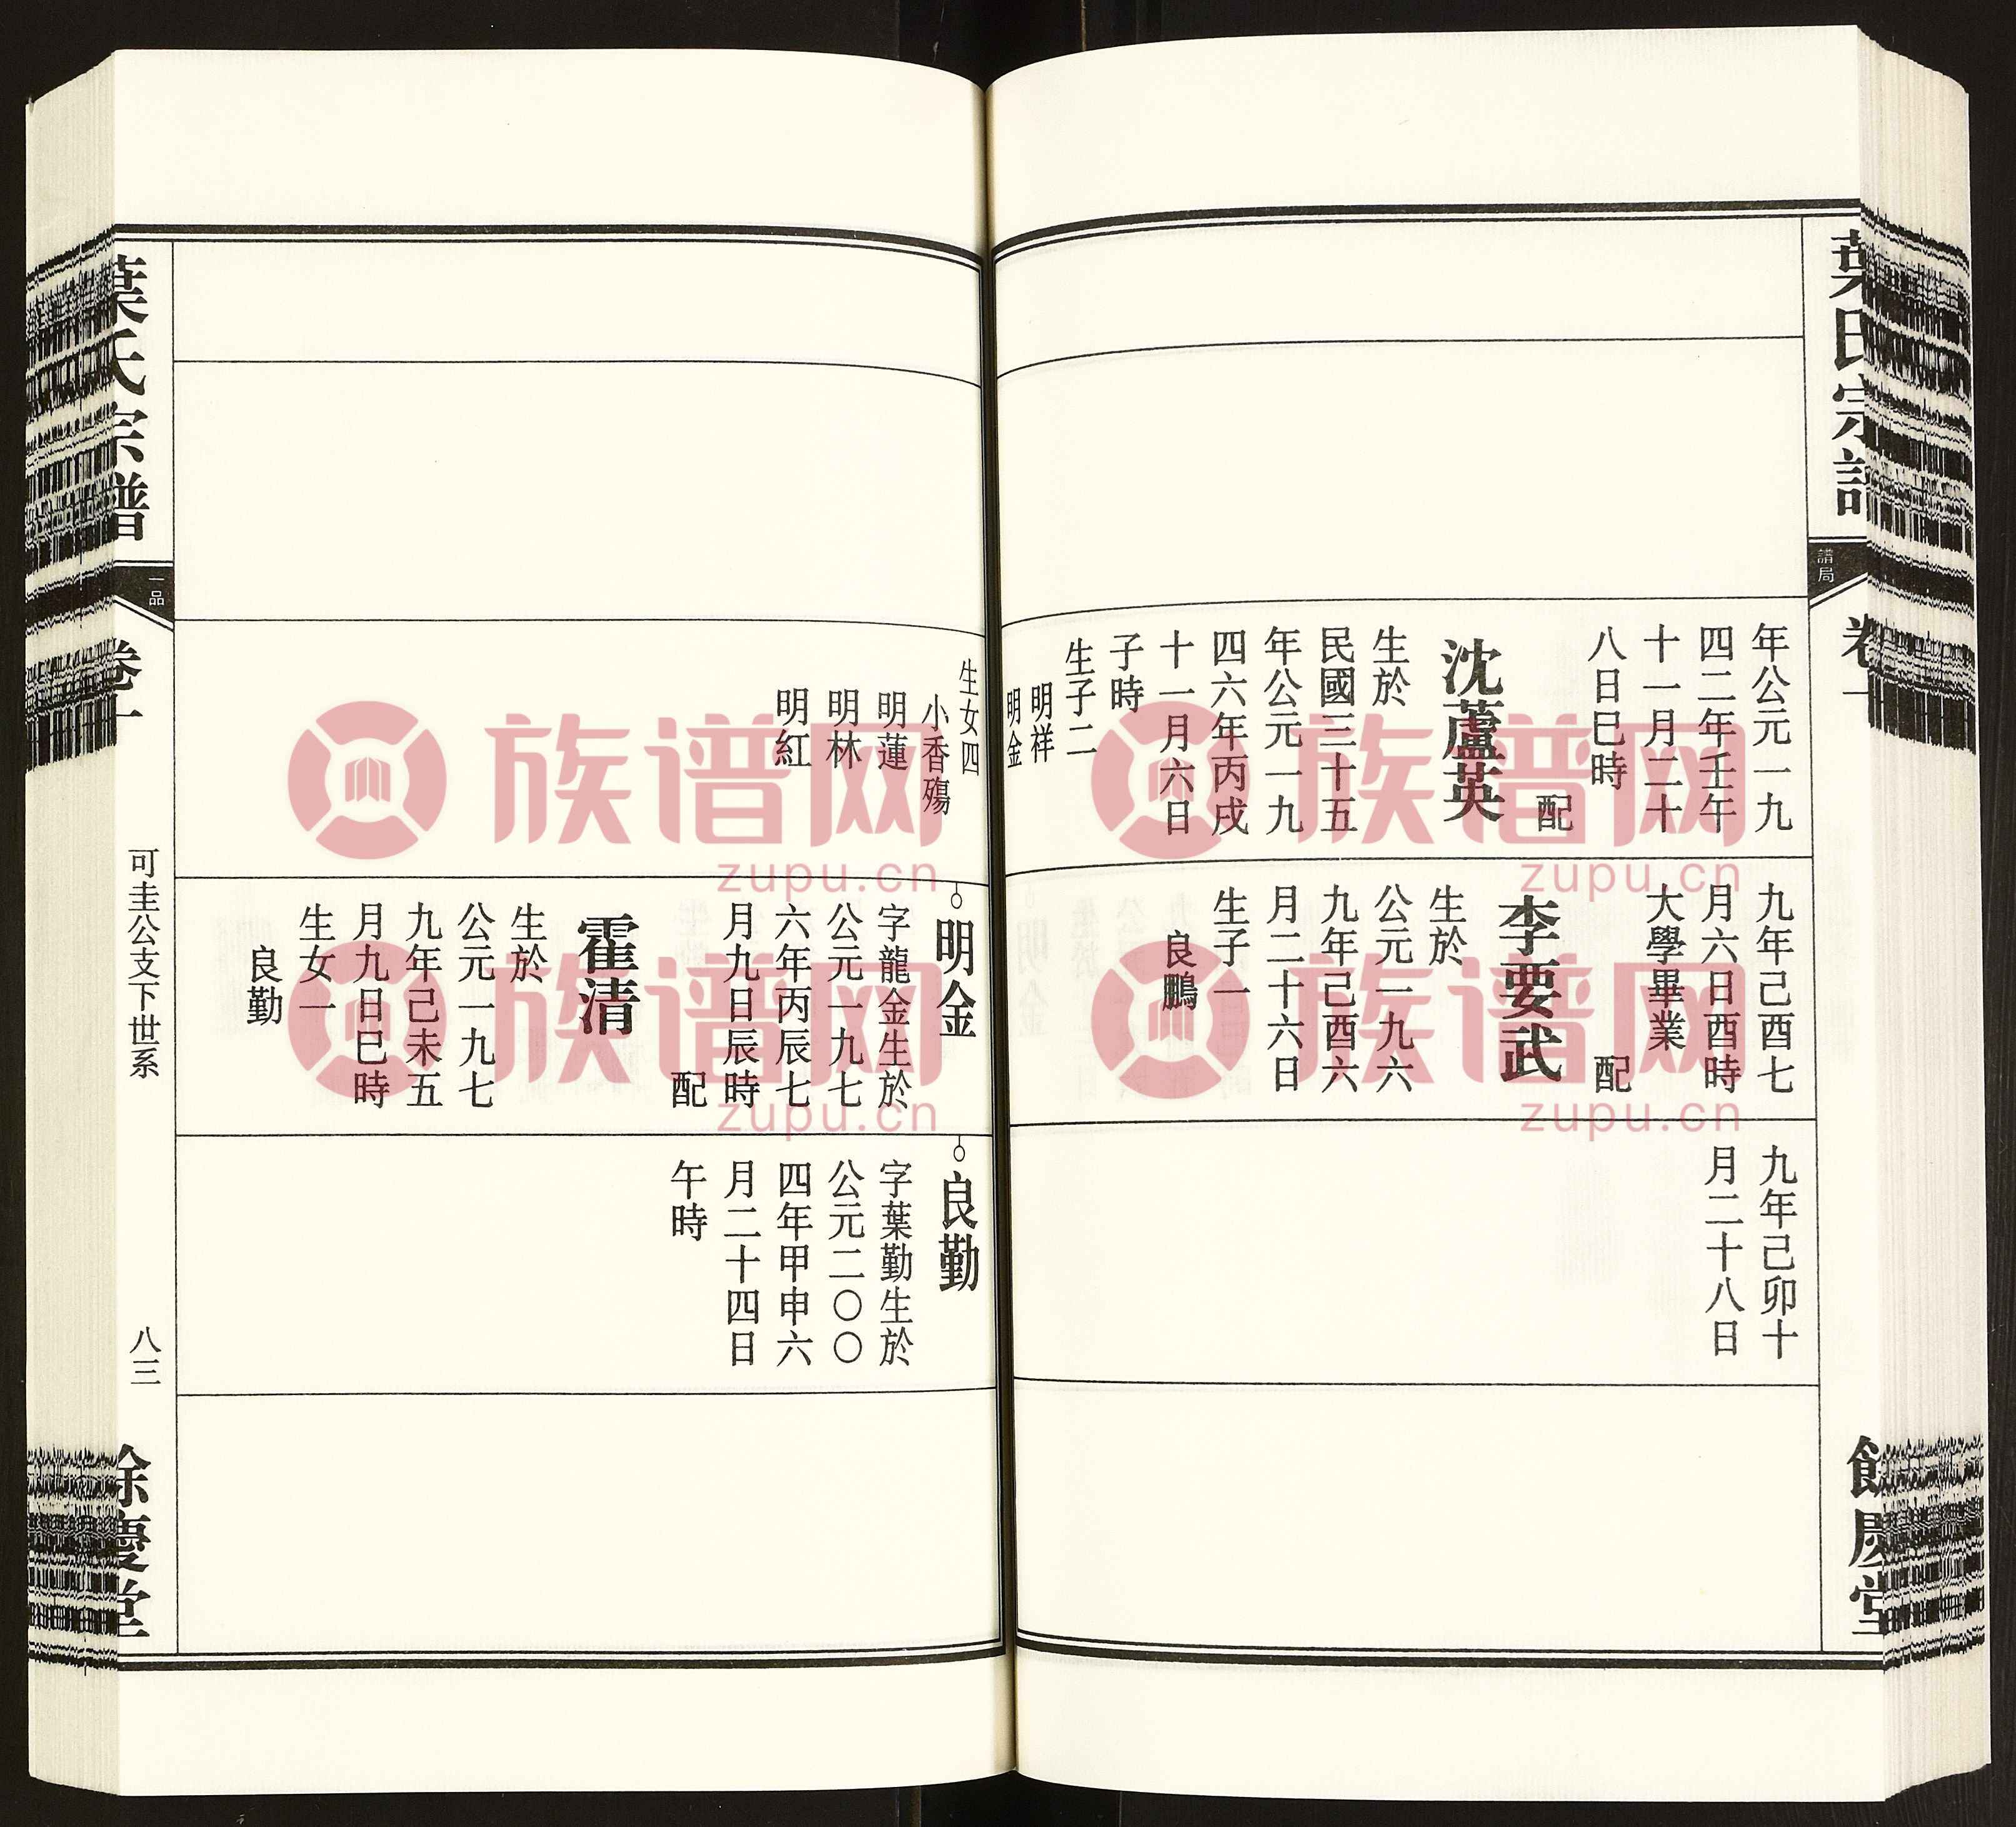 葉氏宗譜
譜局
卷一
餘慶堂
年公元一九
四二年壬午
十一月二十
八日巳時
配
沈蘆英
生於
民國三十五
年公元一九
四六年丙戌
十一月六日
子時
生子二
明祥
明金
九年己酉七
月六日酉時
大學畢業
配
李要武
生於
公元一九六
九年己酉六
月二十六日
生子一
良鵬
九年己卯十
月二十八日
生女四
小香殤
明蓮
明林
明紅
明金
字龍金生於
公元一九七
六年丙辰七
月九日辰時
配
霍清
生於
公元一九七
九年己未五
月九日巳時
生女一
良勤
良勤
字葉勤生於
公元二〇〇
四年甲申六
月二十四日
午時
葉氏宗譜
一品
卷一
可圭公支下世系
八三
餘慶堂
族谱网
zupu.cn
族谱网
zupu.cn
族谱网
zupu.cn
族谱网
zupu.cn